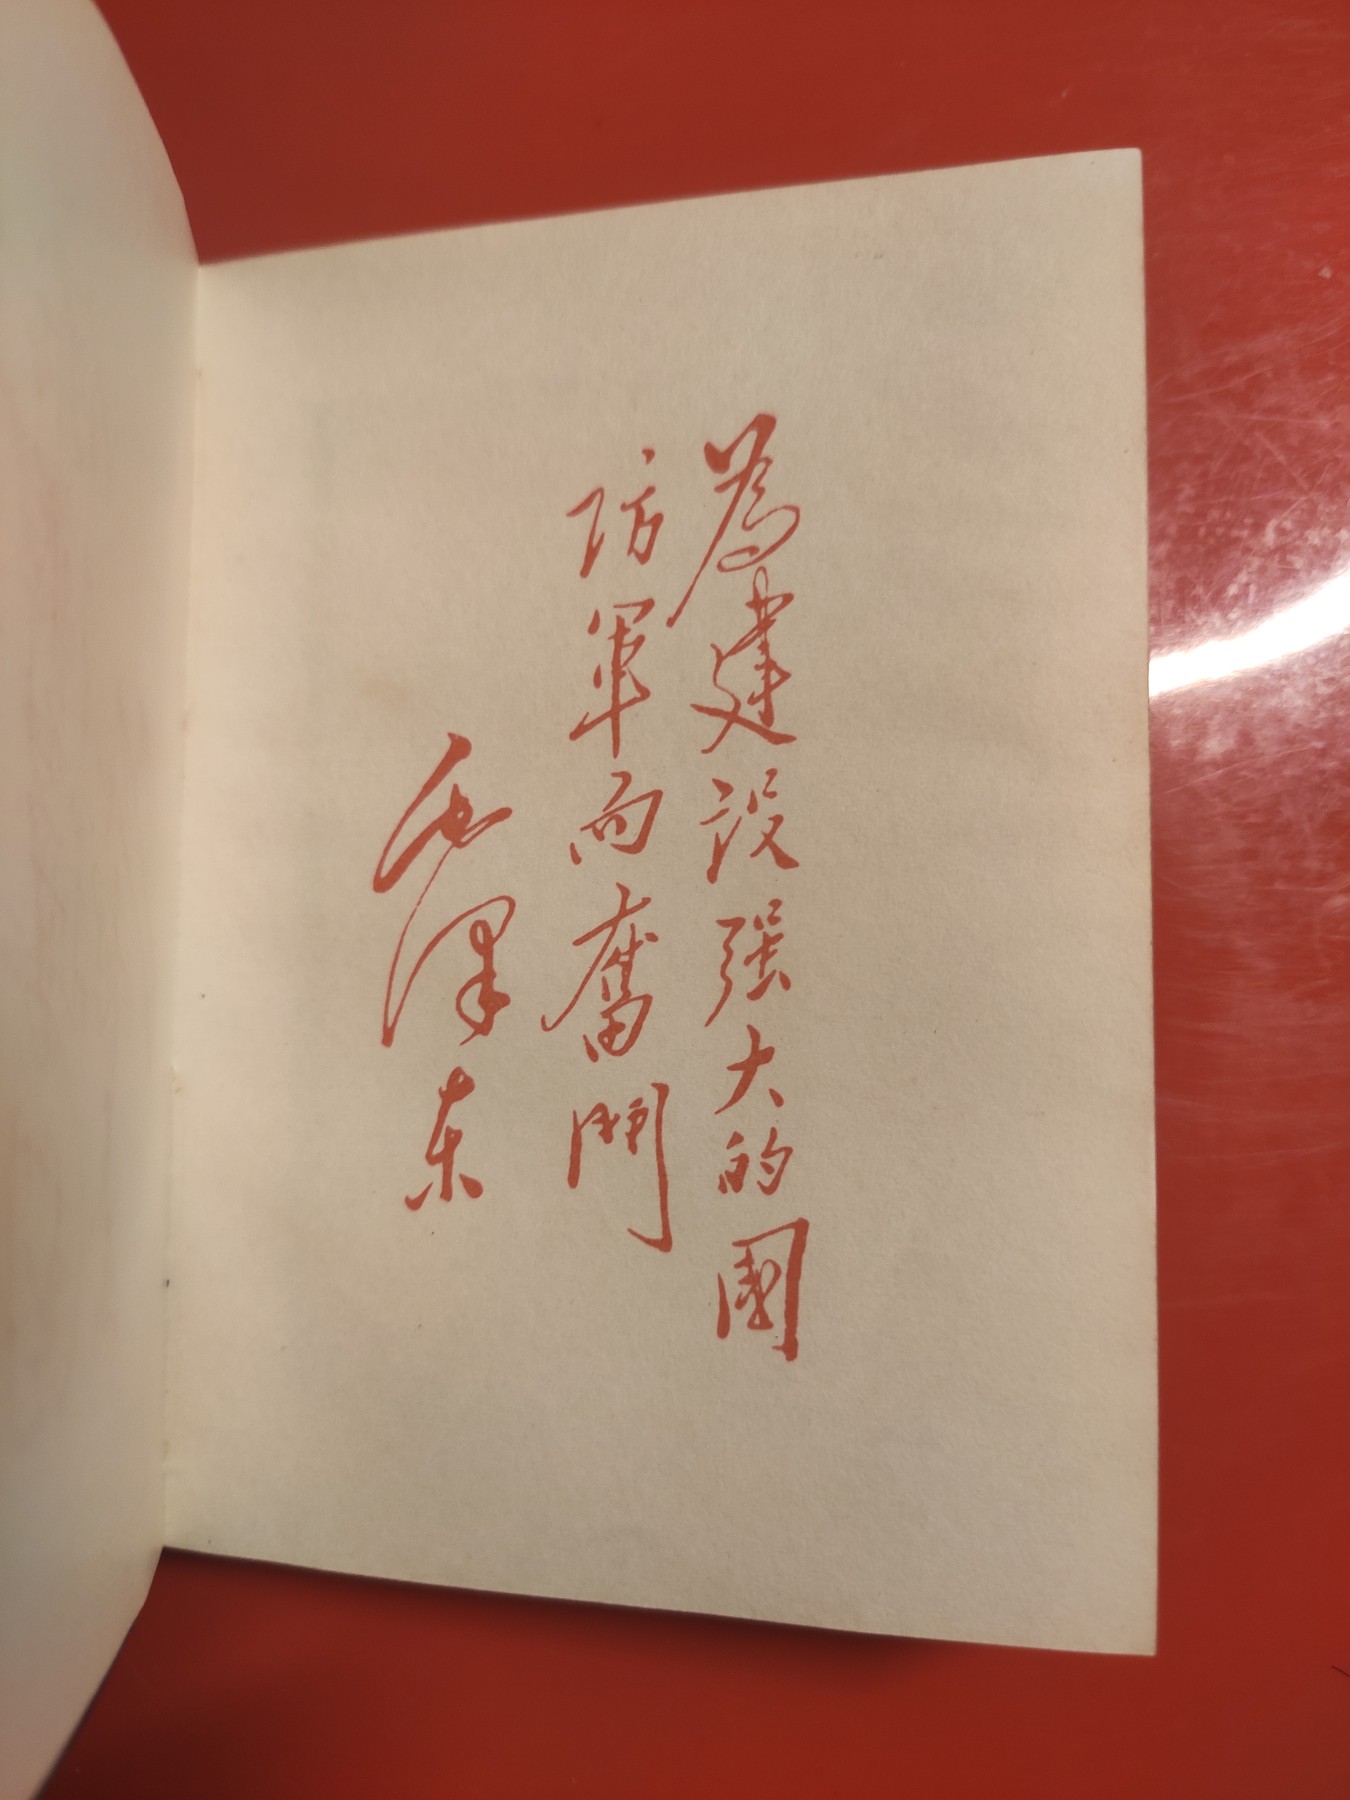 為建設强大的國
防軍而奮鬥
毛澤东